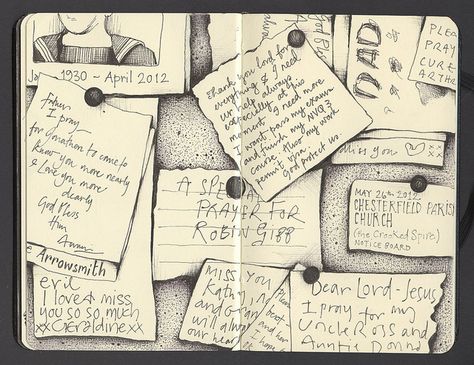 1930 ~ April 2012
Father
I pray
for Jonathon to come to
know you more nearly
& love you more
dearly
God Bless
Him
Arrowsmith
evil
I love & miss
you so so much
xx Geraldine xx
Thank you Lord for
everything & I need
your help always
especially at this
moment. I need more
want pass my exams
and finish my NVQ 3
course thou my work
permit visa.
God protect us.
A SPE
PRAYER FOR
ROBIN GIBB
MISS YOU
Kathy
and Gran
will alwa
our hear
God Bles
DAD
PLEA
PRAY
CURE
ARTHR
Miss you xx
xx
MAY 26th 2012
CHESTERFIELD PARISH
CHURCH
(the Crooked Spire)
NOTICE BOARD
Dear Lord - Jesus
I pray for my
Uncle Ross and
Auntie Donna